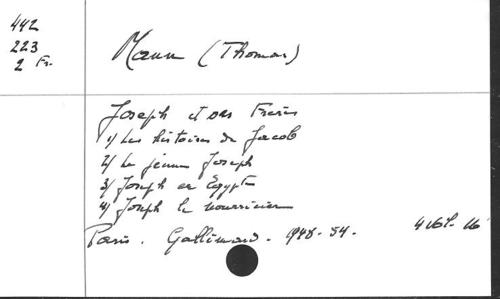 442
223
2 Fr.
Mann (Thomas)
Joseph et ses Frères
1) Les histoires de Jacob
2) Le jeune Joseph
3) Joseph en Egypte
4) Joseph le nourricier
Paris. Gallimard. 1948-54. 4 vol. 16